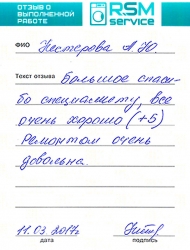 ОТЗЫВ О
ВЫПОЛНЕННОЙ
РАБОТЕ
RSM
service
ФИО Нестерова А.Ю.
Текст отзыва Большое спаси-
бо специалисту, все
очень хорошо (+5)
Ремонтом очень
довольна.
11.03.2017г
дата подпись